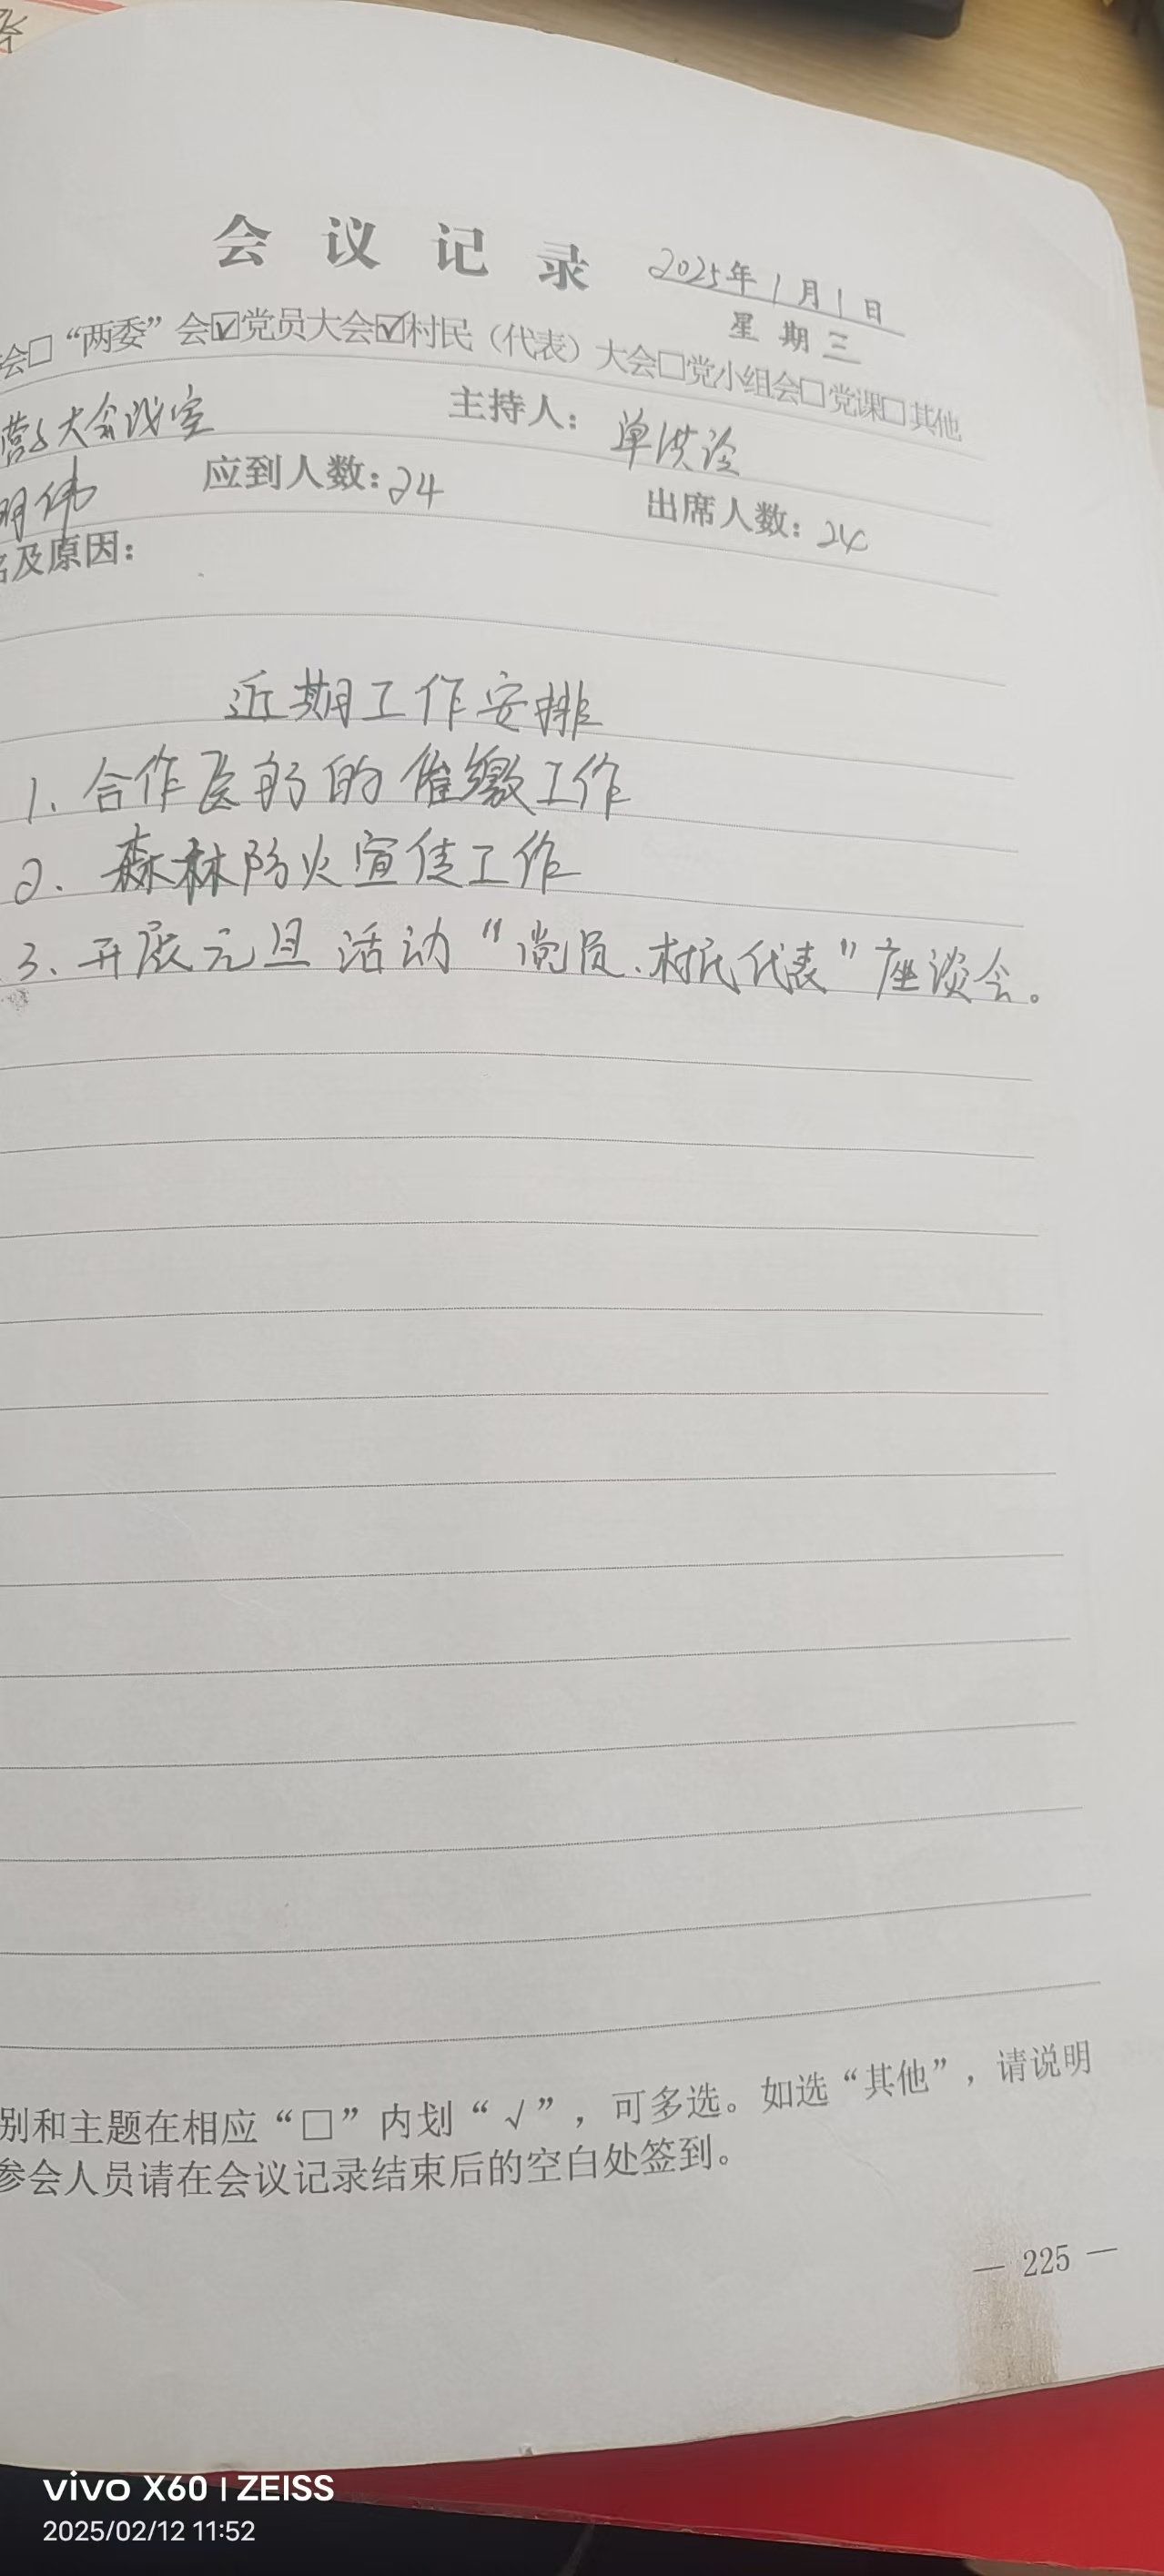 会议记录 2025年1月1日
星期三
会□“两委”会☑党员大会☑村民（代表）大会□党小组会□党课□其他
大会议室 主持人：单洪
明伟 应到人数：24 出席人数：24
名及原因：
近期工作安排
1、合作医疗的催缴工作
2、森林防火宣传工作
3、开展元旦活动“党员、村民代表”座谈会。
别和主题在相应“□”内划“√”，可多选。如选“其他”，请说明
参会人员请在会议记录结束后的空白处签到。
— 225 —
vivo X60 | ZEISS
2025/02/12 11:52